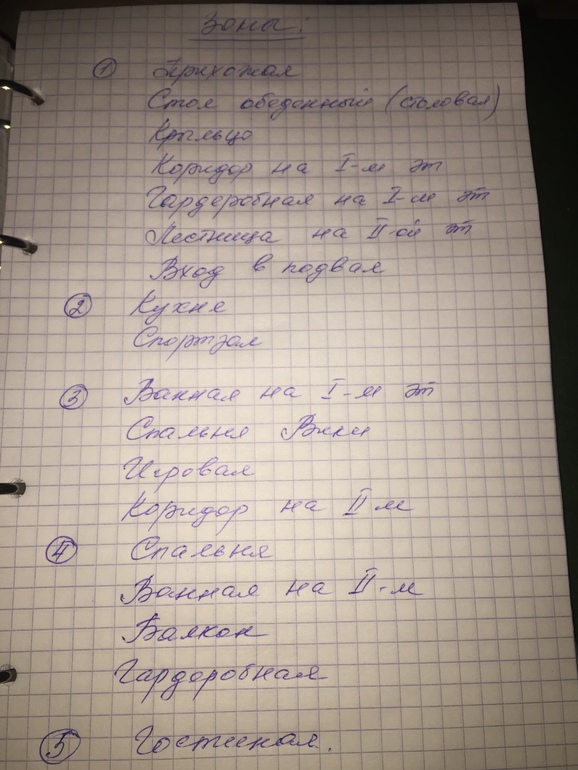 Зоны:
① Прихожая
Стол обеденный (столовая)
Крыльцо
Коридор на I-м эт
Гардеробная на I-м эт
Лестница на II-ой эт
Вход в подвал
② Кухня
Спортзал
③ Ванная на I-м эт
Спальня Вики
Игровая
Коридор на II м
④ Спальня
Ванная на II-м
Балкон
Гардеробная
⑤ Гостиная.